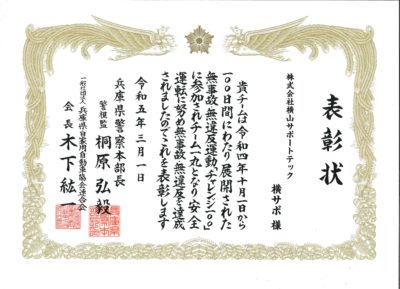 表彰状
株式会社横山サポートテック
横サポ 様
貴チームは令和四年十月一日から
一〇〇日間にわたり展開された
無事故・無違反運動「チャレンジ一〇〇」
に参加されチーム一丸となり安全
運転に努め無事故・無違反を達成
されましたのでこれを表彰します
令和五年三月一日
兵庫県警察本部長
警視監 桐原弘毅
一般社団法人 兵庫県自家用自動車協会連合会
会長 木下紘一